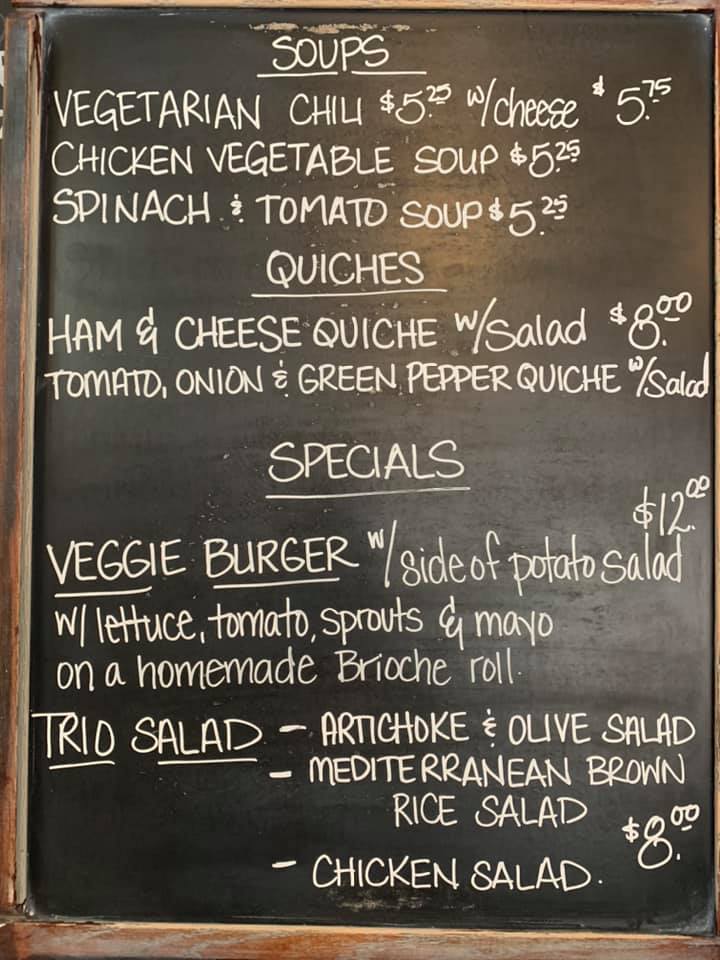 SOUPS
VEGETARIAN CHILI $5.25 w/cheese $5.75
CHICKEN VEGETABLE SOUP $5.25
SPINACH & TOMATO SOUP $5.25
QUICHES
HAM & CHEESE QUICHE w/Salad $8.00
TOMATO, ONION & GREEN PEPPER QUICHE w/Salad
SPECIALS
$12.00
VEGGIE BURGER w/side of potato salad
w/ lettuce, tomato, sprouts & mayo
on a homemade Brioche roll.
TRIO SALAD - ARTICHOKE & OLIVE SALAD
- MEDITERRANEAN BROWN
RICE SALAD
$8.00
- CHICKEN SALAD.